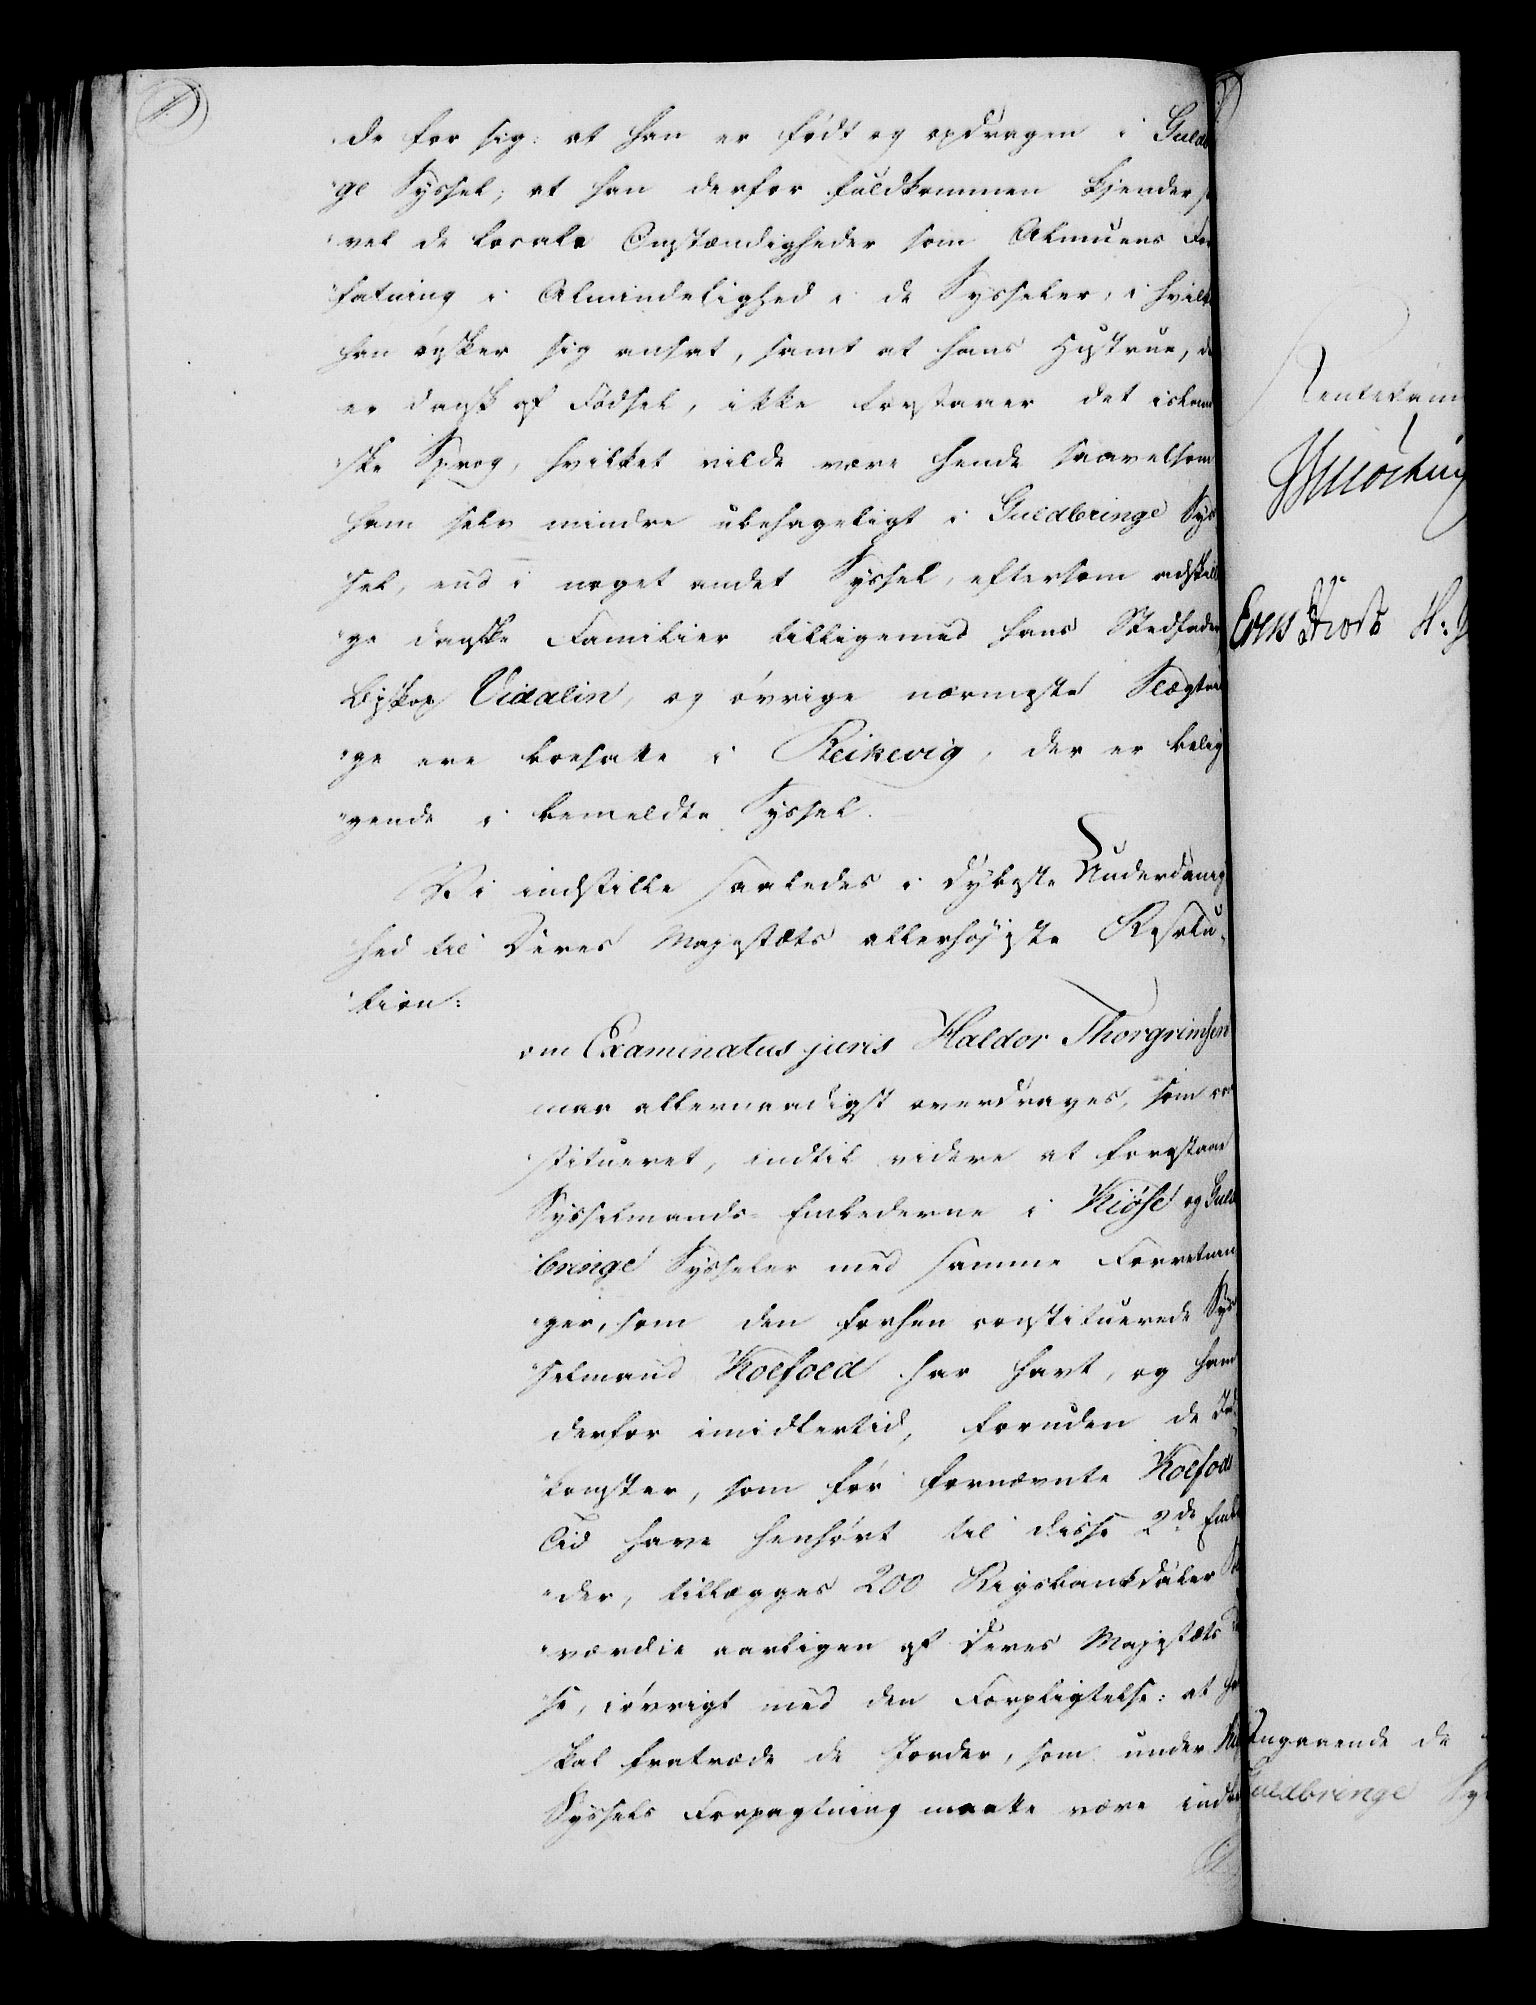 de for sig: at han er født og opdragen i Guld
ge Syssel; at han derfor fuldkommen kjender
vel de locale Omstændigheder som Almuens For
fatning i Almindelighed i de Sysseler, i hvilke
han ønsker sig ansat, samt at hans Hustrue, d
er dansk af Fødsel, ikke forstaaer det islan
ske Sprog, hvilket vilde være hende saavelsom
ham selv mindre ubehageligt i Guldbringe Sys
sel, end i noget andet Syssel, eftersom adskil
ge danske Familier tilligemed hans Stedfader
Biskop Vidalin, og øvrige nærmeste Slægtnin
ge ere boesatte i Reikevig, der er belig
gende i bemeldte Syssel.
Vi indstille saaledes i dybeste Underdanig
hed til Deres Majestæts allerhøjeste Resolu-
tion:
om Examinatus juris Haldor Thorgrimsen
maa allernaadigst overdrages, som con
stitueret, indtil videre at forestaae
Sysselmands-Embederne i Kiøse og Guld
bringe Sysseler med samme Forretnin
ger, som den forhen constituerede Sys
selmand Koefoed har havt, og ham
derfor imidlertid, foruden de Ind
komster, som før fornævnte Koefoeds
Tid have henhørt til disse 2de Embe
der, tillægges 200 Rigsbankdaler
værdie aarligen af Deres Majestæts
se, iøvrigt med den Forpligtelse: at h
skal fratræde de Jorder, som under
Syssels Forpagtning maatte være ind
Rentekam
Erns H:
Angaaende de
Guldbringe Sy